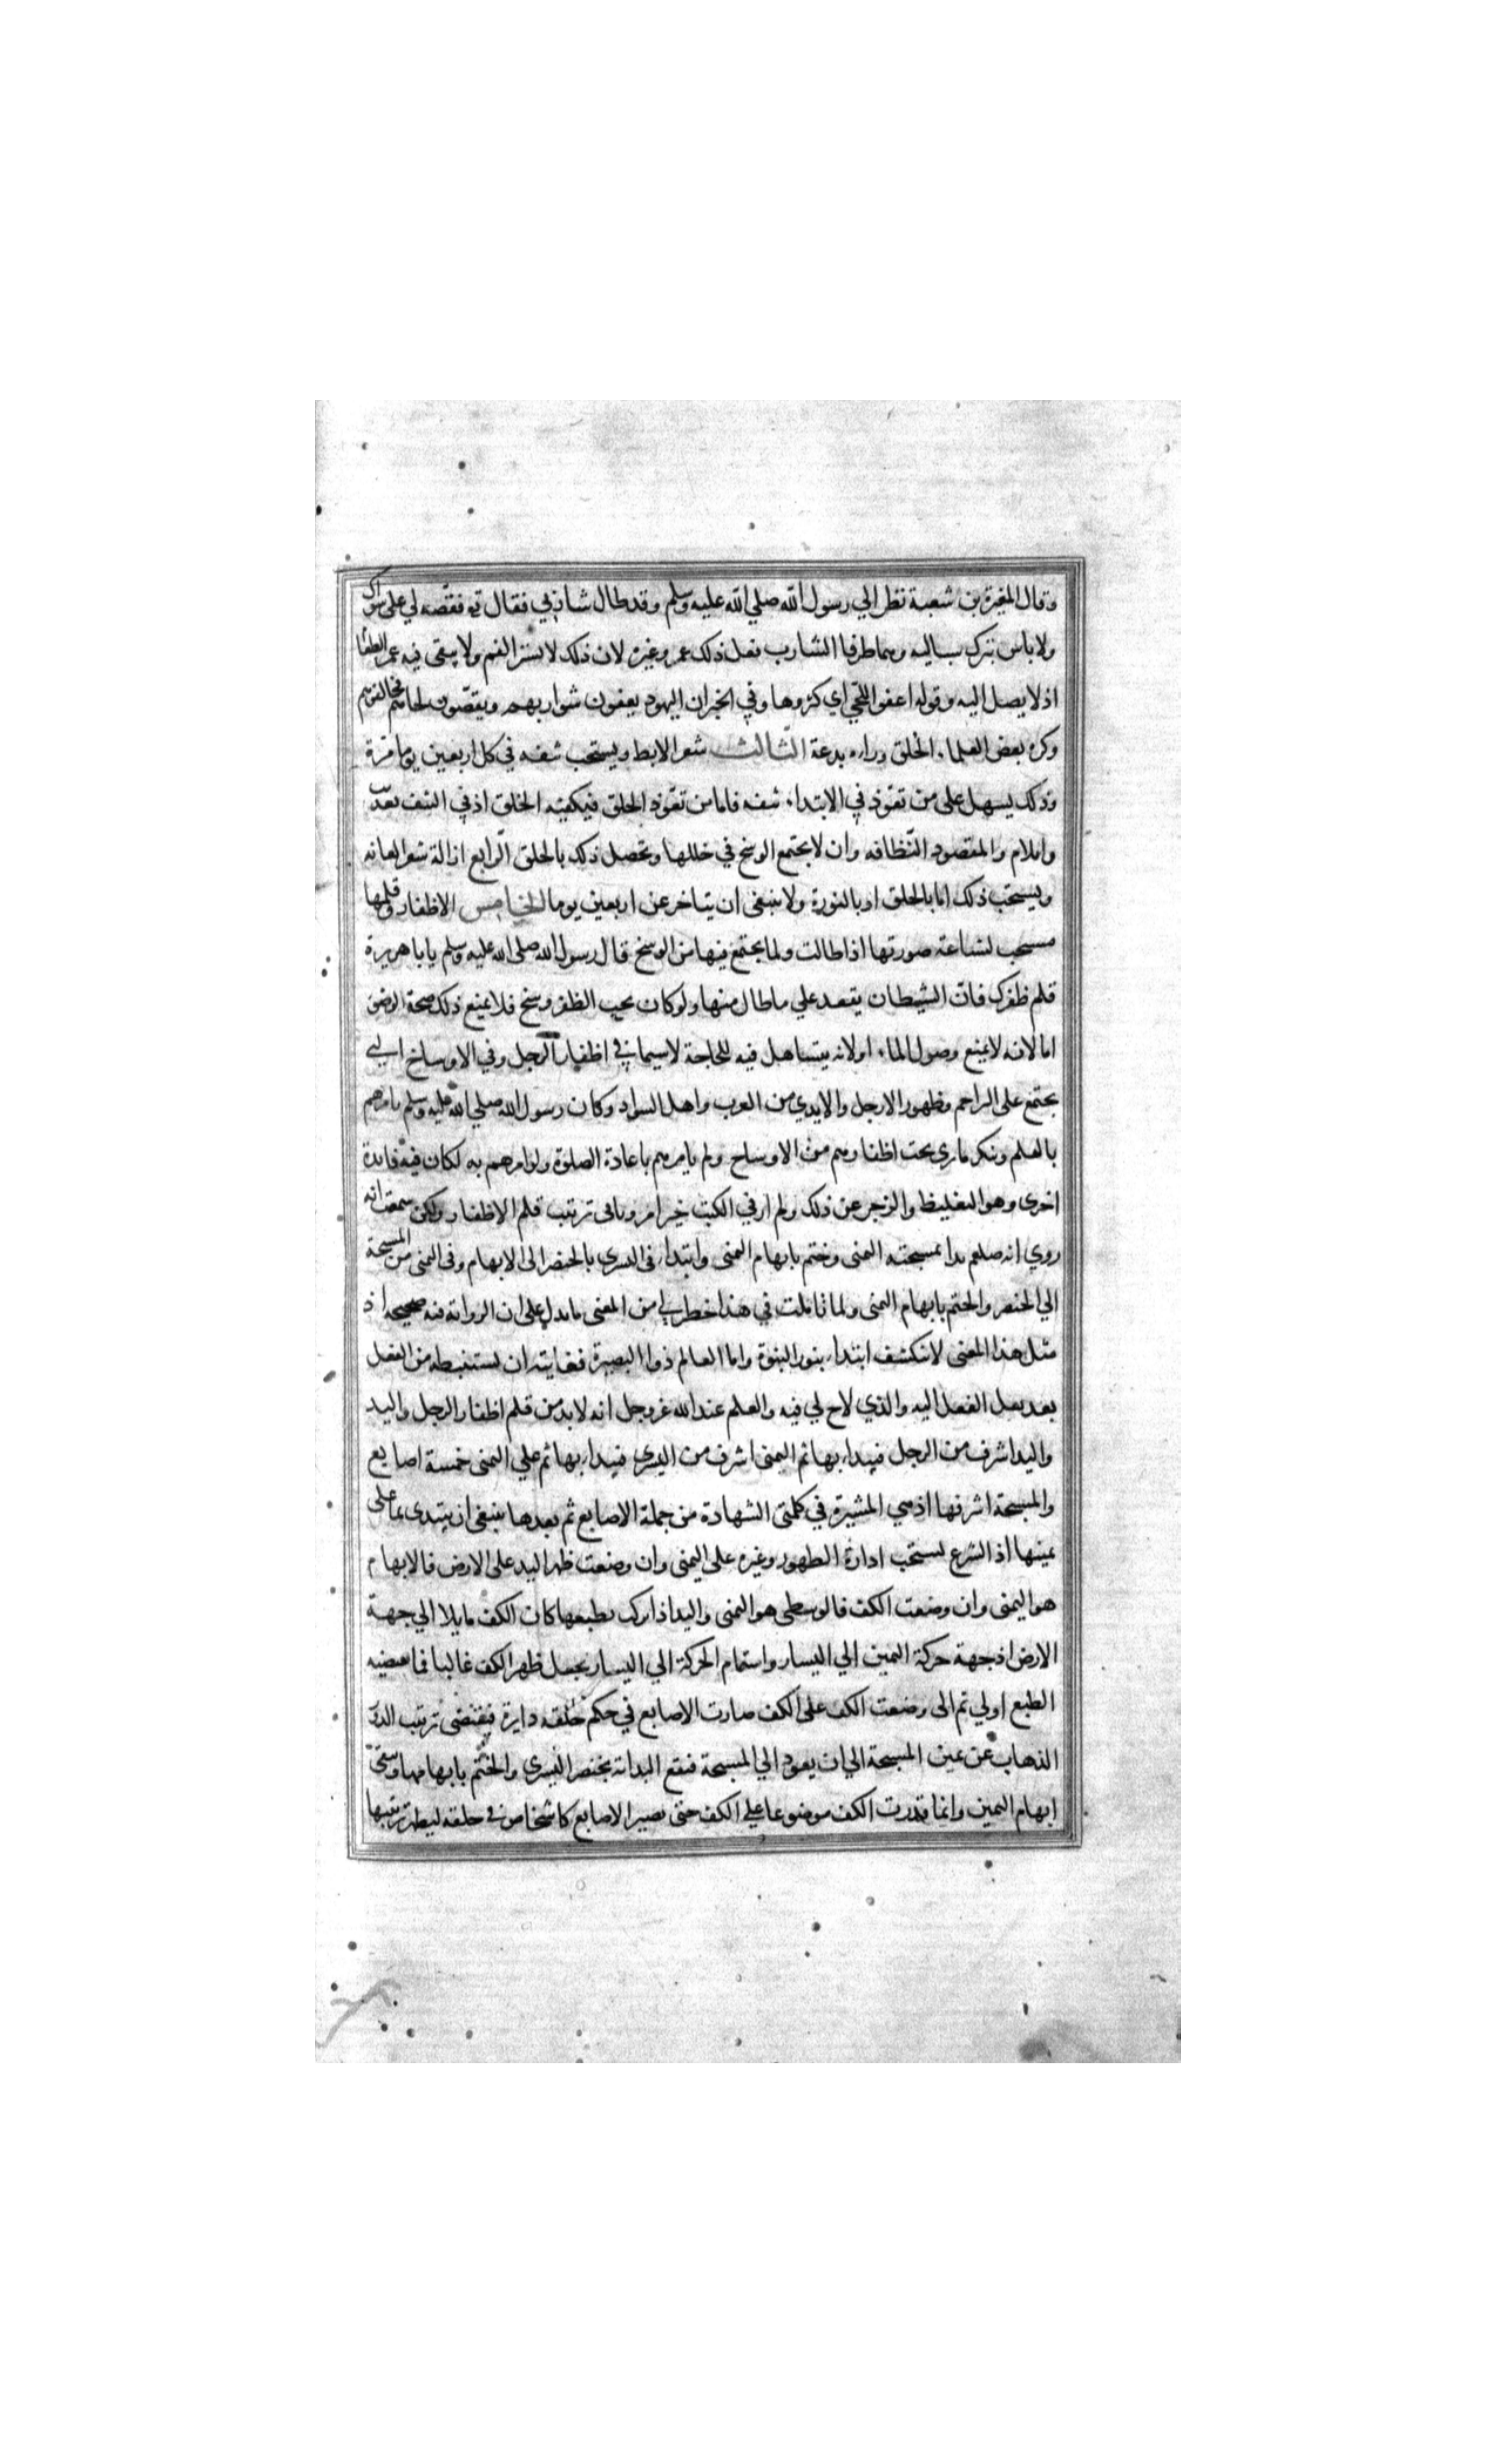 وقال المغيرة بن شعبة نظر الي رسول الله صلي الله عليه وسلم وقد طال شاربي فقال تع فقصه لي على سواك
ولا باس بترك سباليه وهما طرفا الشارب فعل ذلك عمر وغيره لان ذلك لا يستر الفم ولا يبقى فيه غمر الطعام
اذ لا يصل اليه وقوله اعفوا اللحي اي كثروها وفي الخبر ان اليهود يعفون شواربهم ويقصون لحاهم فخالفوهم
وكره بعض العلماء الحلق وراه بدعة الثالث شعر الابط ويستحب نتفه في كل اربعين يوما مرة
وذلك يسهل على من تعود في الابتداء نتفه فاما من تعود الحلق فيكفيه الحلق اذ في النتف تعذيب
وايلام والمقصود النظافه وان لا يجتمع الوسخ في خللها وتحصل ذلك بالحلق الرابع ازالة شعر العانه
ويستحب ذلك اما بالحلق او بالنورة ولا ينبغى ان يتاخر عن اربعين يوما الخامس الاظفار وقلمها
مستحب لشناعة صورتها اذا طالت ولما يجتمع فيها من الوسخ قال رسول الله صلى الله عليه وسلم يابا هريرة
قلم ظفرك فان الشيطان يقعد علي ما طال منها ولو كان تحت الظفر وسخ فلا يمنع ذلك صحة الوضو
اما لانه لا يمنع وصول الماء او لانه يتساهل فيه للحاجة لا سيما في اظفار الرجل وفي الاوساخ التي
يجتمع على البراجم وظهور الارجل والايدي من العرب واهل السواد وكان رسول الله صلي الله عليه وسلم يامرهم
بالقلم وينكر ما رى تحت اظفارهم من الاوساخ ولم يامرهم باعادة الصلوة ولو امرهم به لكان فيه فائدة
اخرى وهو التغليظ والزجر عن ذلك ولم ار في الكتب خبرا مرويا فى ترتيب قلم الاظفار ولكن سمعت انه
روي انه صلعم بدا بمسبحته اليمنى وختم بابهام اليمنى وابتداء فى اليسرى بالخنصر الى الابهام وفى اليمنى من المسبحة
الي الخنصر والختم بابهام اليمنى ولما تاملت في هذا خطر لي من المعنى ما يدل على ان الرواية فيه صحيحه اذ
مثل هذا المعنى لا ينكشف ابتداء بنور النبوة واما العالم ذوا البصيرة فغايته ان يستنبطه من العقل
بعد نقل الفعل اليه والذي لاح لي فيه والعلم عند الله عز وجل انه لابد من قلم اظفار الرجل واليد
واليد اشرف من الرجل فيبداء بها ثم اليمنى اشرف من اليسرى فيبداء بها ثم علي اليمنى خمسة اصابع
والمسبحة اشرفها اذ هي المشيرة في كلمتى الشهادة من جملة الاصابع ثم بعدها ينبغى ان يبتدى بما على
يمينها اذ الشرع يستحب ادارة الطهور وغيره على اليمنى وان وضعت ظهر اليد على الارض فالابهام
هو اليمنى وان وضعت الكف فالوسطى هو اليمنى واليد اذا ترك بطبعها كان الكف مايلا الي جهة
الارض اذ جهة حركة اليمين الي اليسار واستمام الحركة الي اليسار يجعل ظهر الكف غالبا فما يقتضيه
الطبع اولي ثم اذا وضعت الكف على الكف صارت الاصابع في حكم حلقه دايرة فيقتضى ترتيب الدور
الذهاب عن يمين المسبحة الي ان يعود الي المسبحة فتقع البداية بخنصر اليسرى والختم بابهامها وستختم
ابهام اليمين وانما قدرت الكف موضوعا علي الكف حتى تصير الاصابع كاشخاص في حلقه ليظهر ترتيبها